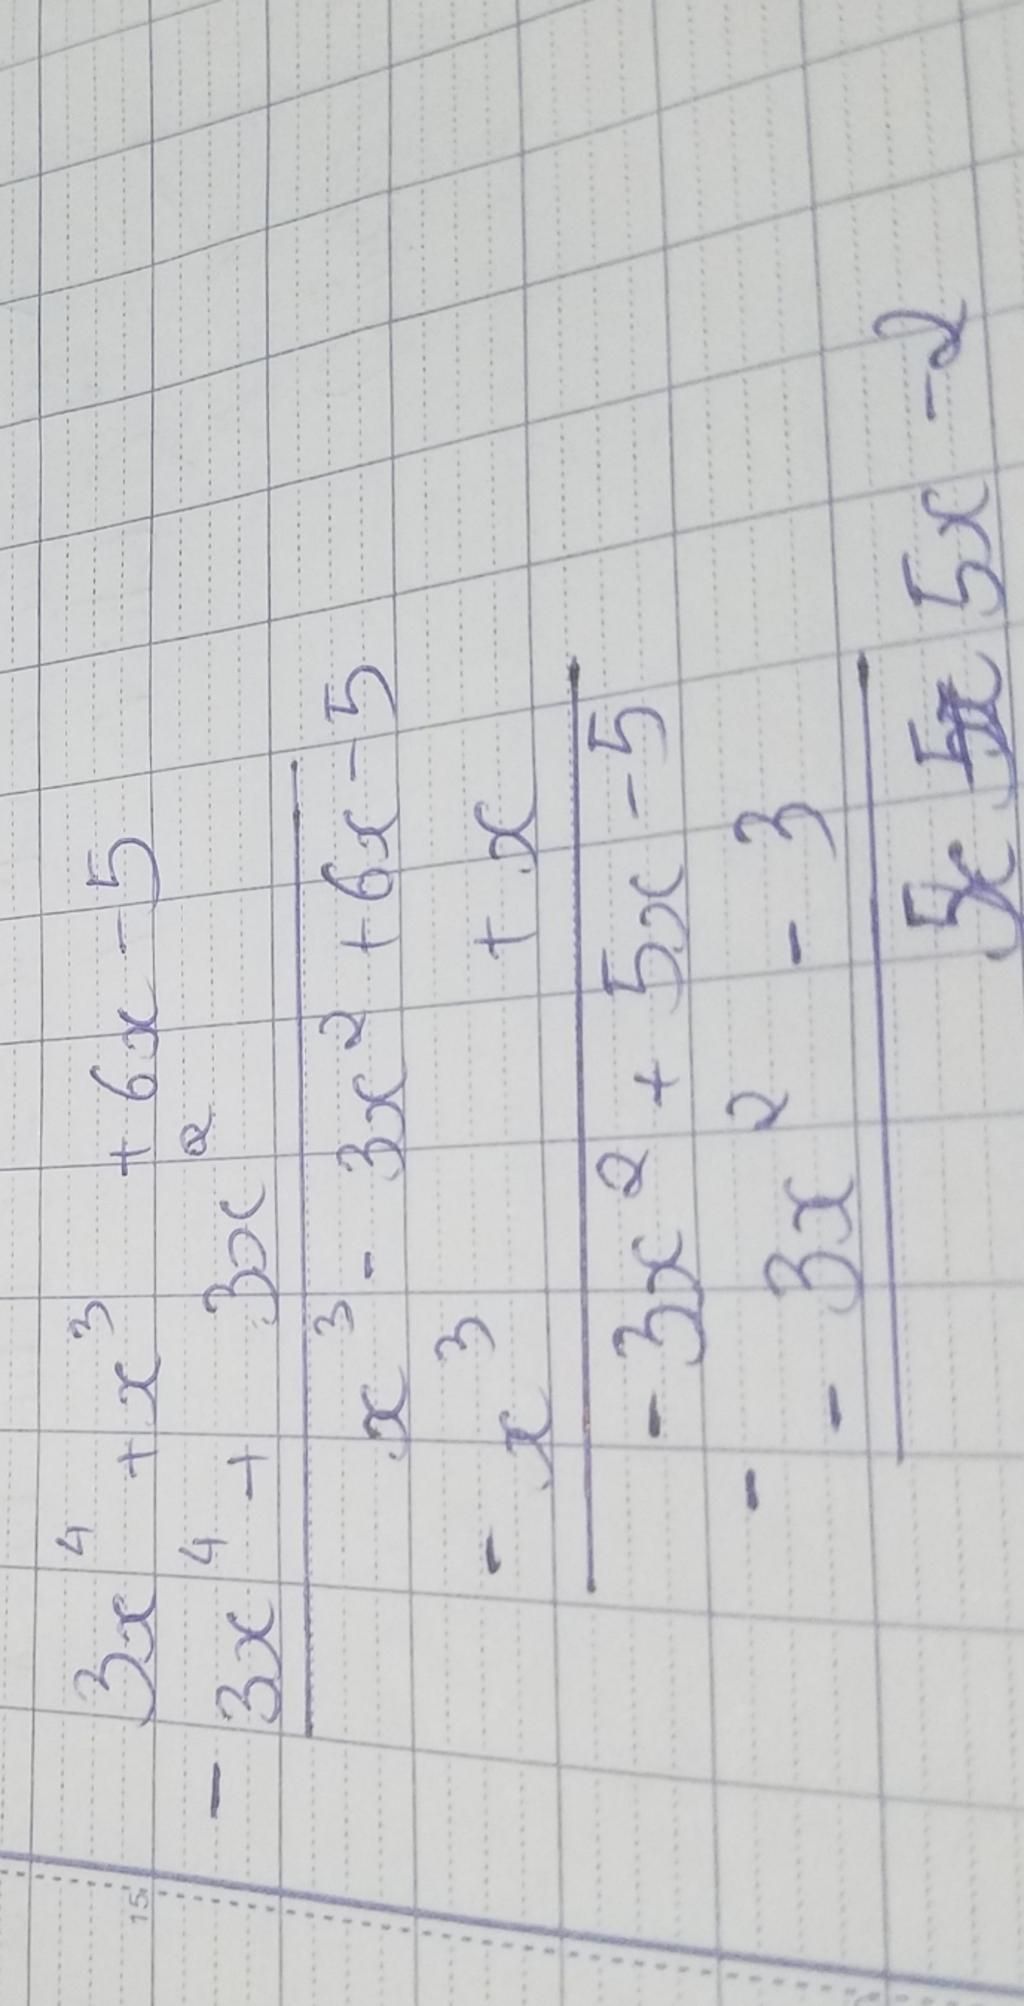 3x⁴ + x³ + 6x - 5
- 3x⁴ + 3x²
x³ - 3x² + 6x - 5
- x³ + x
- 3x² + 5x - 5
- - 3x² - 3
5x 5x - 2
15